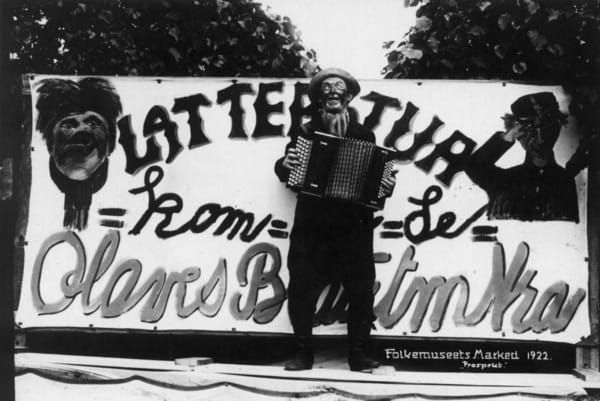 LATTERATUR
= Kom = = de =
Olaves
Folkemuseets Marked 1922.
"Prospekt."